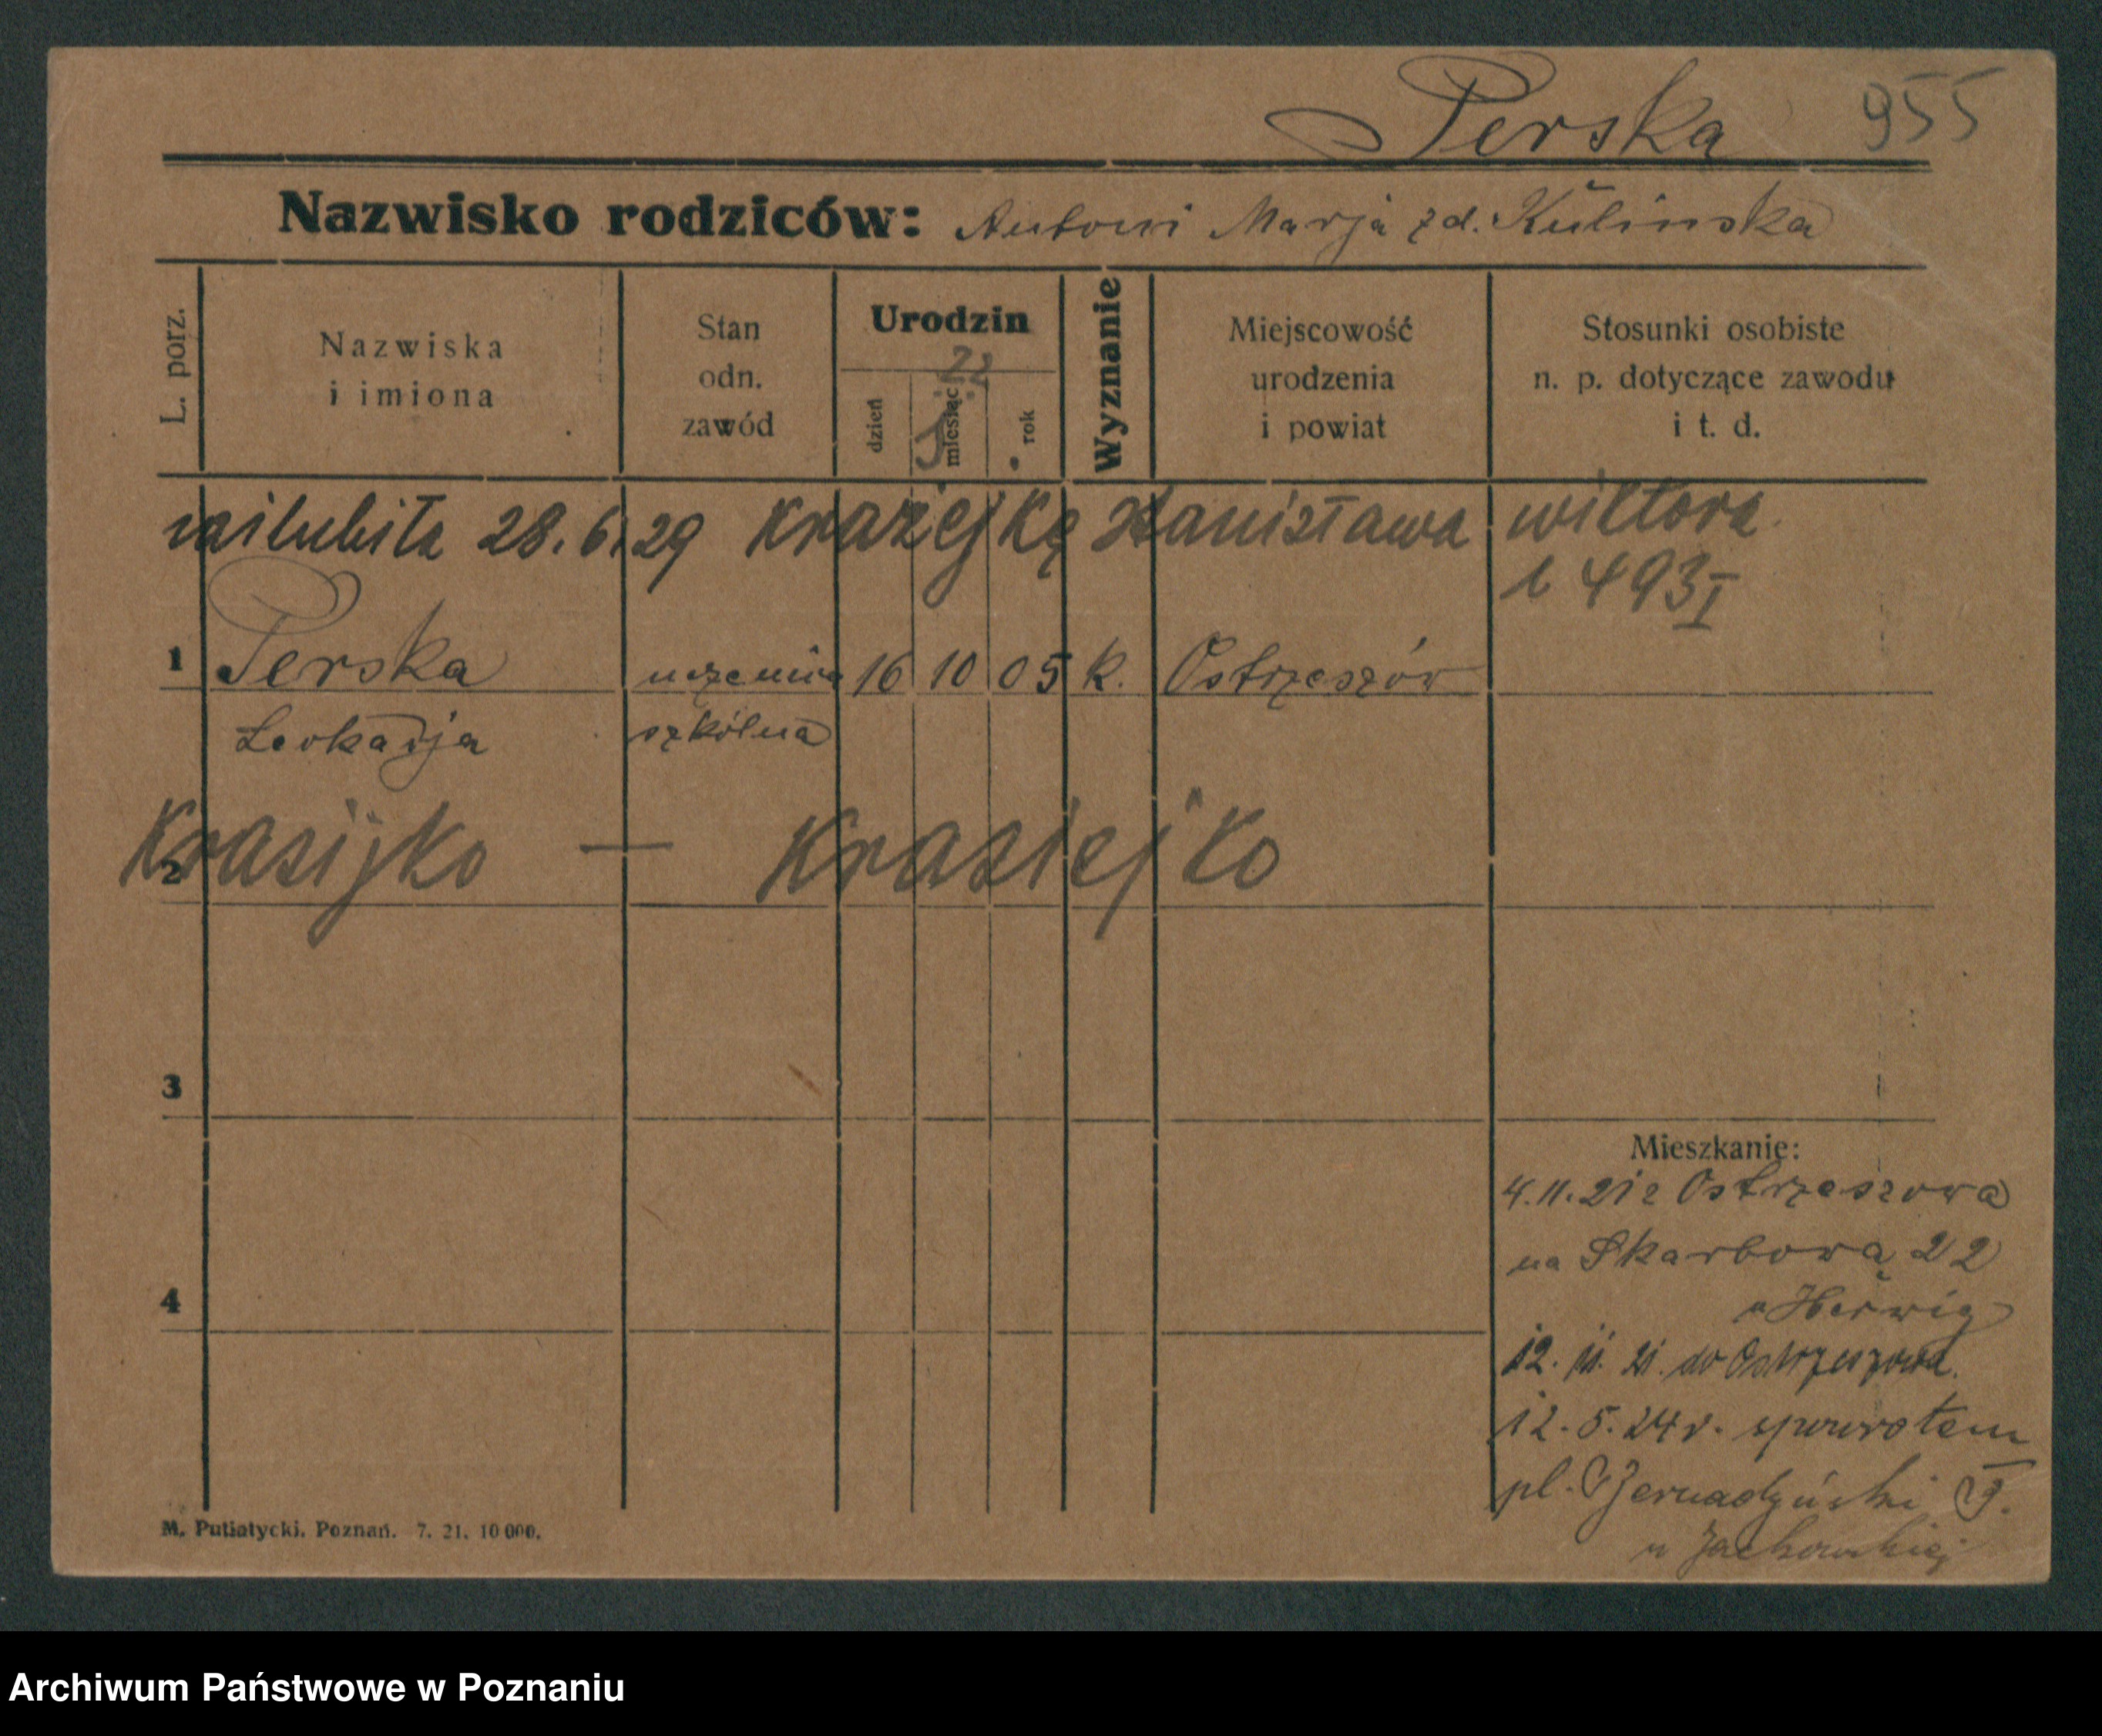 Perska 955
Nazwisko rodziców: Antoni Marja zd. Kulinska
L. porz.
Nazwiska
i imiona
Stan
odn.
zawód
Urodzin
22
dzień
miesiąc
rok
Wyznanie
Miejscowość
urodzenia
i powiat
Stosunki osobiste
n. p. dotyczące zawodu
i t. d.
28.6.29 Krazejkę Stanisława wiktora
493 I
1 Perska uczenica 16 10 05 k. Ostrzeszów
Leokadja szkólna
2 Krasijko — Krasiejko
3
4
Mieszkanie:
4.11.21 z Ostrzeszowa
na Skarbową 22
u Herwig
12. 11. 21. do Ostrzeszowa.
12.5.24 r. spowrotem
pl. Bernadyński
u
M. Putiatycki. Poznań. 7. 21. 10 000.
Archiwum Państwowe w Poznaniu